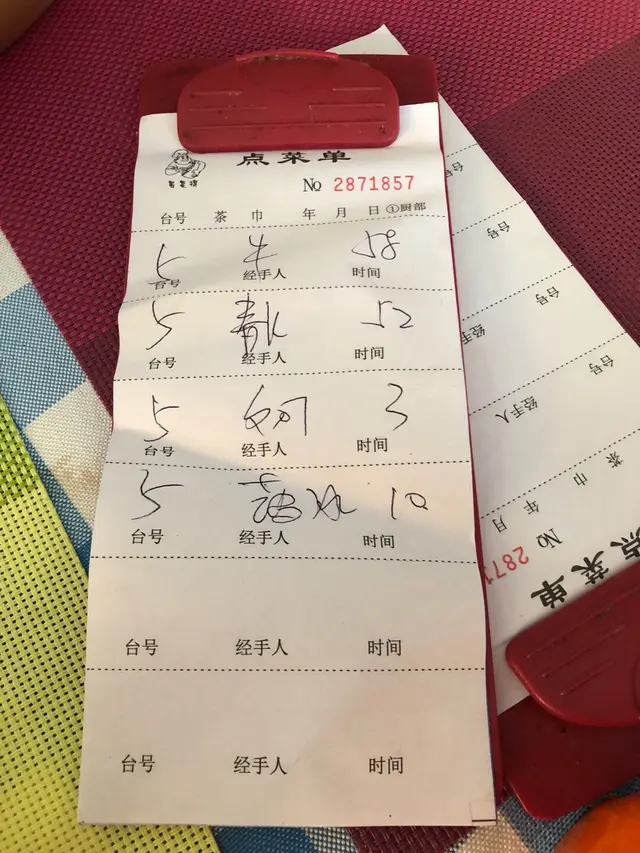 点菜单
№ 2871857
台号 茶 巾 年 月 日 ①厨部
5 牛 58
台号 经手人 时间
5 52
台号 经手人 时间
5 3
台号 经手人 时间
5 10
台号 经手人 时间
台号 经手人 时间
台号 经手人 时间
台号
台号
台号
经手人
台号
经手人
茶 巾 年 月
№ 287
点菜单